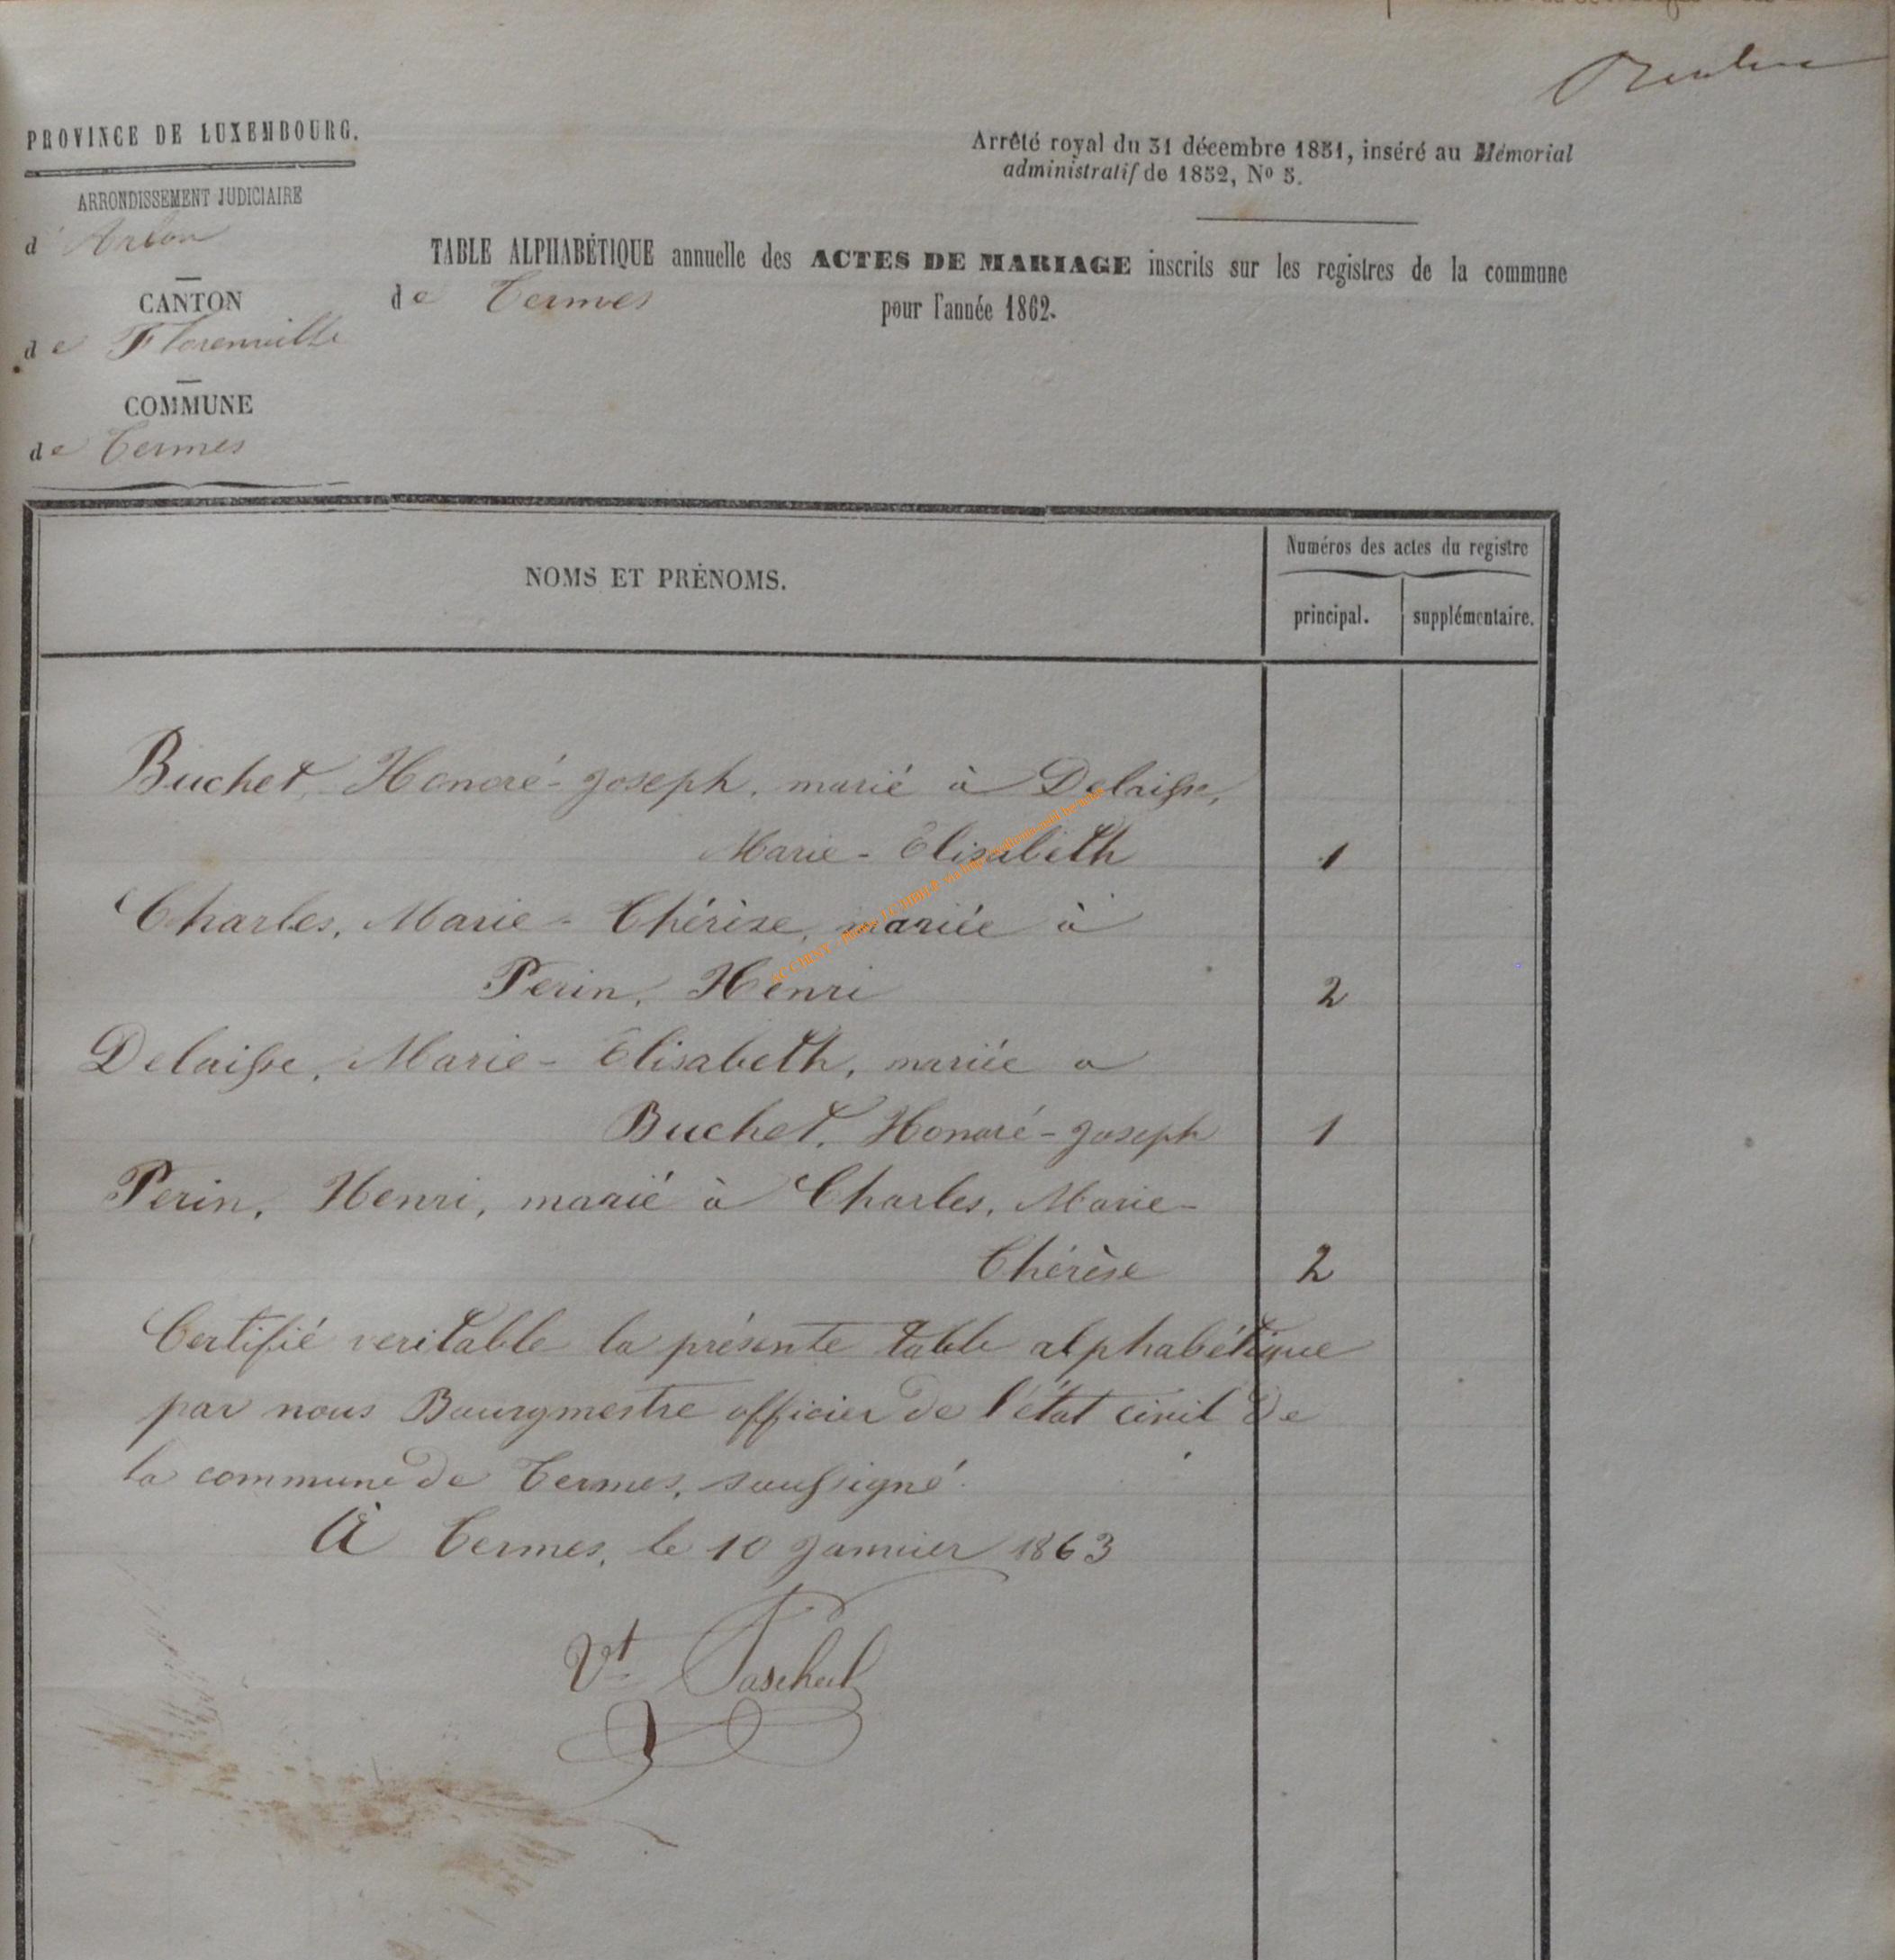 PROVINCE DE LUXEMBOURG.
ARRONDISSEMENT JUDICIAIRE
d'Arlon
CANTON
de Florenville
COMMUNE
de Termes
Arrêté royal du 31 décembre 1831, inséré au Mémorial
administratif de 1832, No 5.
TABLE ALPHABÉTIQUE annuelle des ACTES DE MARIAGE inscrits sur les registres de la commune
de Termes pour l'année 1862.
NOMS ET PRÉNOMS.
Numéros des actes du registre
principal. supplémentaire.
Buchet, Honoré-Joseph, marié à Delaisse,
Marie-Elisabeth 1
Charles, Marie-Thérèse, mariée à
Perin, Henri 2
Delaisse, Marie-Elisabeth, mariée a
Buchet, Honoré-Joseph 1
Perin, Henri, marié à Charles, Marie-
Thérèse 2
Certifié veritable la présente table alphabétique
par nous Bourgmestre officier de l'état civil de
la commune de Termes, soussigné.
A Termes, le 10 Janvier 1863
Vt